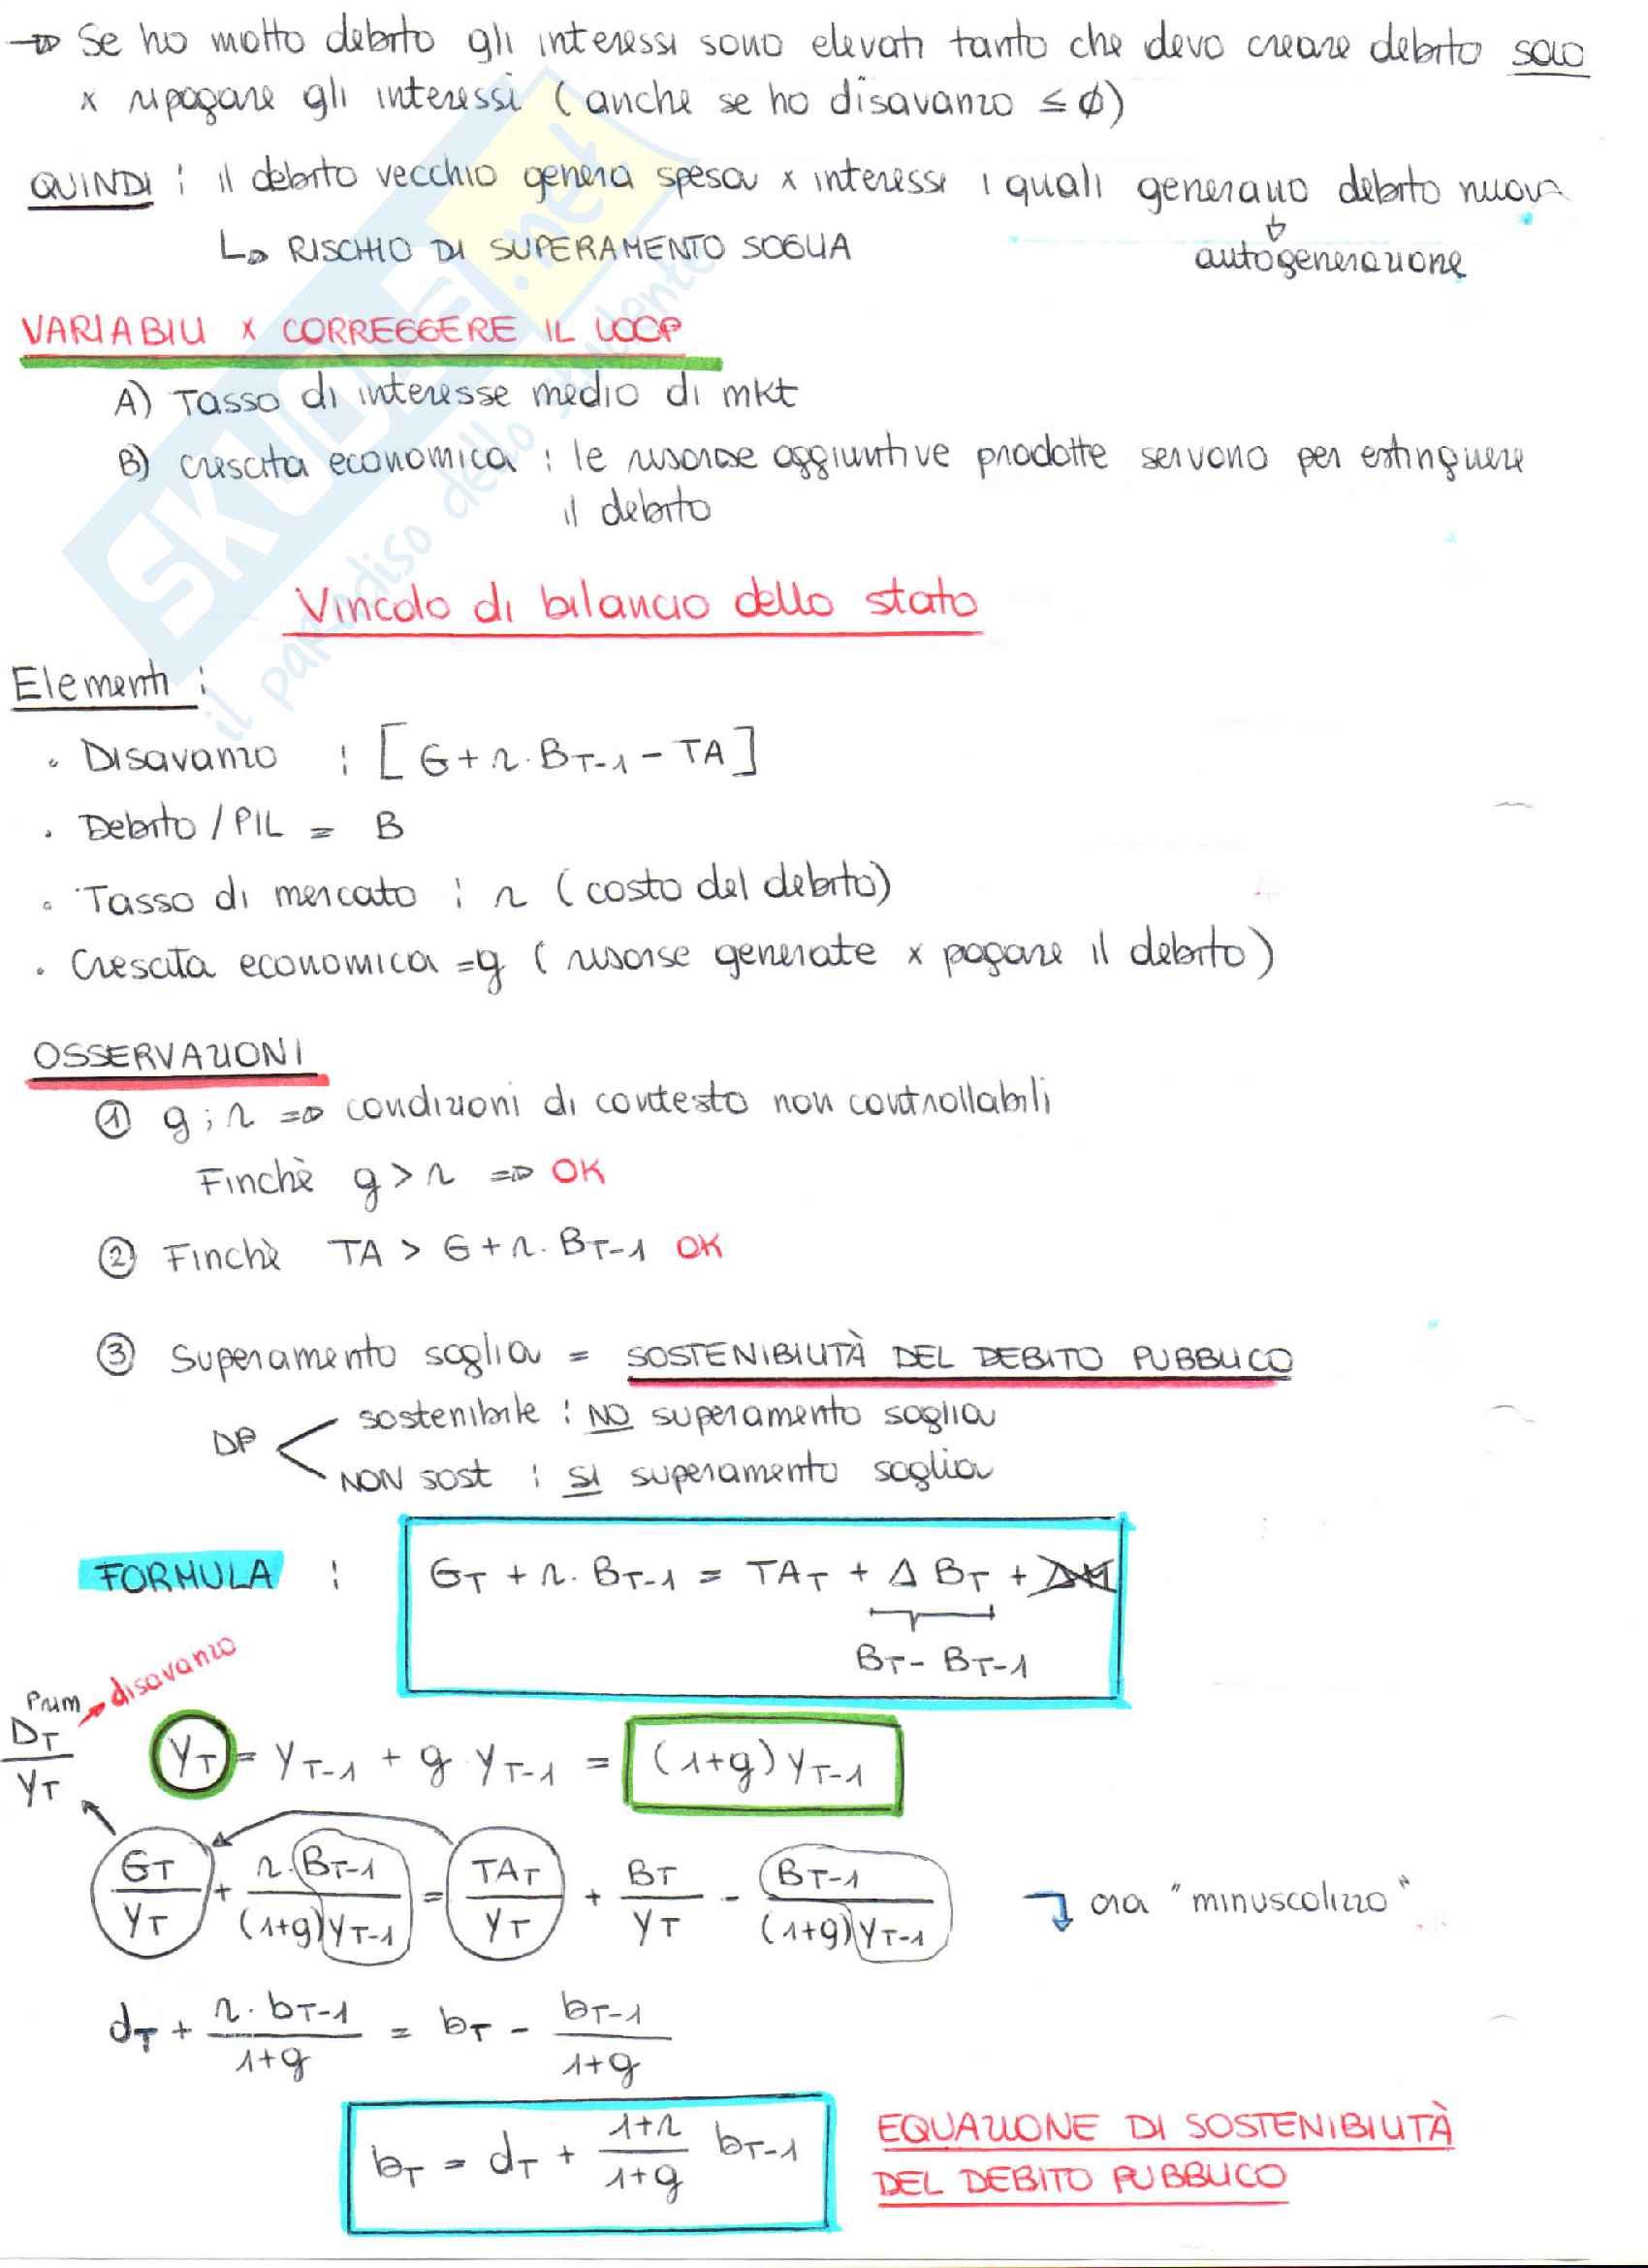 → Se ho molto debito gli interessi sono elevati tanto che devo creare debito solo
x ripagare gli interessi (anche se ho disavanzo ≤ ∅)
QUINDI : il debito vecchio genera spesa x interessi i quali generano debito nuovo
↳ RISCHIO DI SUPERAMENTO SOGLIA
autogenerazione
VARIABILI x CORREGGERE IL LOOP
A) Tasso di interesse medio di mkt
B) crescita economica : le risorse aggiuntive prodotte servono per estinguere
il debito
Vincolo di bilancio dello stato
Elementi :
• Disavanzo : [G + r · B_T-1 - TA]
• Debito / PIL = B
• Tasso di mercato : r (costo del debito)
• Crescita economica = g (risorse generate x pagare il debito)
OSSERVAZIONI
① g ; r ⇒ condizioni di contesto non controllabili
Finchè g > r ⇒ OK
② Finchè TA > G + r · B_T-1 OK
③ Superamento soglia = SOSTENIBILITÀ DEL DEBITO PUBBLICO
DP < sostenibile : NO superamento soglia
NON SOST : SI superamento soglia
FORMULA : G_T + r · B_T-1 = TA_T + Δ B_T + ΔM
B_T - B_T-1
Prim → disavanzo
D_T / Y_T
Y_T = Y_T-1 + g Y_T-1 = (1+g) Y_T-1
G_T / Y_T + r · B_T-1 / (1+g) Y_T-1 = TA_T / Y_T + B_T / Y_T - B_T-1 / (1+g) Y_T-1 ↴ ora "minuscolizzo"
d_T + r · b_T-1 / 1+g = b_T - b_T-1 / 1+g
b_T = d_T + 1+r / 1+g b_T-1
EQUAZIONE DI SOSTENIBILITÀ
DEL DEBITO PUBBLICO
SKUOLA.net
il paradiso dello studente